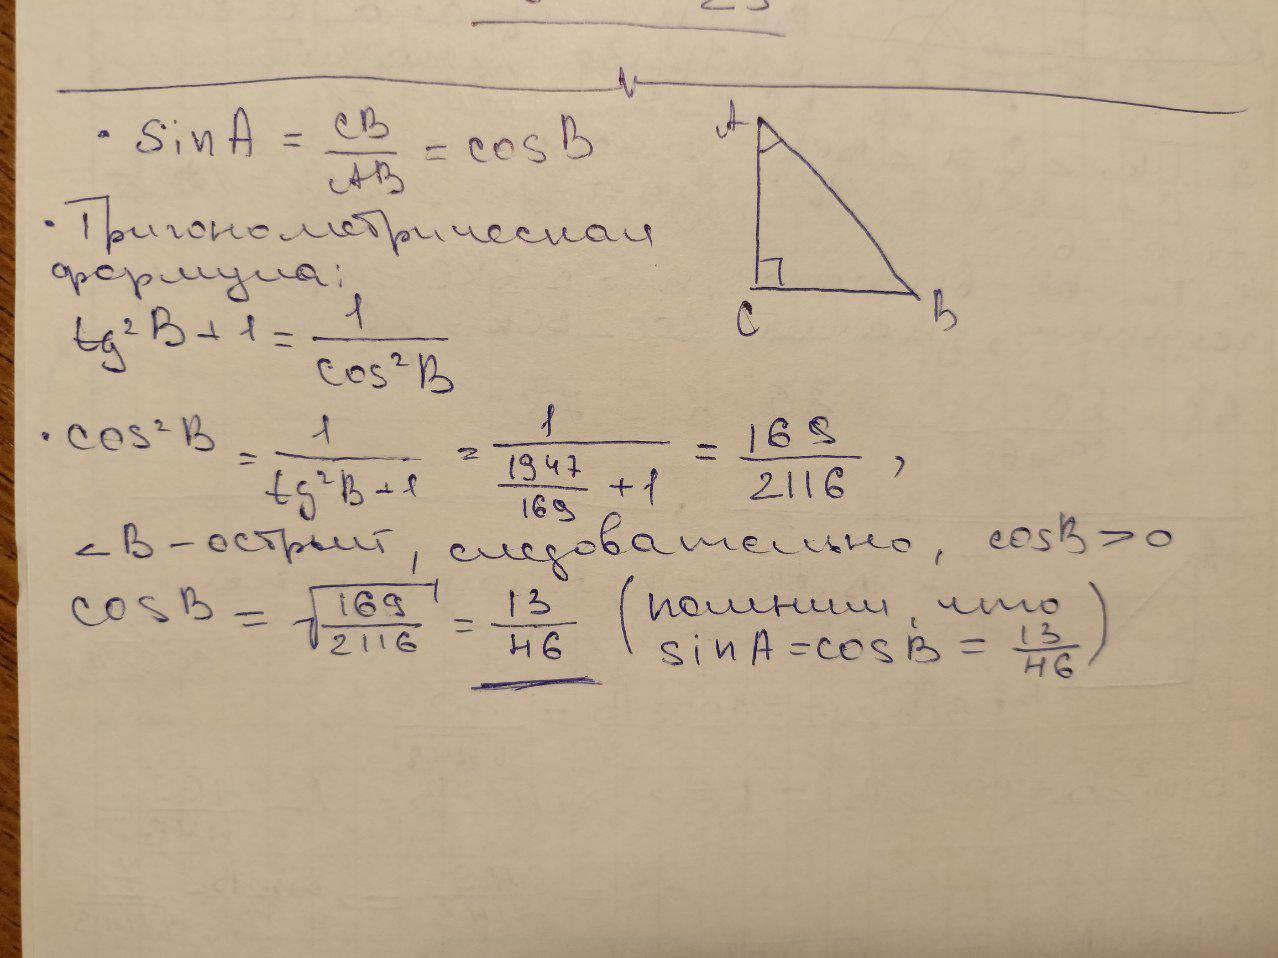 • sinA = CB/AB = cosB
• Тригонометрическая
формула:
tg²B + 1 = 1/cos²B
• cos²B = 1/(tg²B+1) = 1/(1947/169 + 1) = 169/2116 ,
∠B – острый, следовательно, cosB > 0
cosB = √(169/2116) = 13/46 (помним, что
sinA = cosB = 13/46)
A
C
B